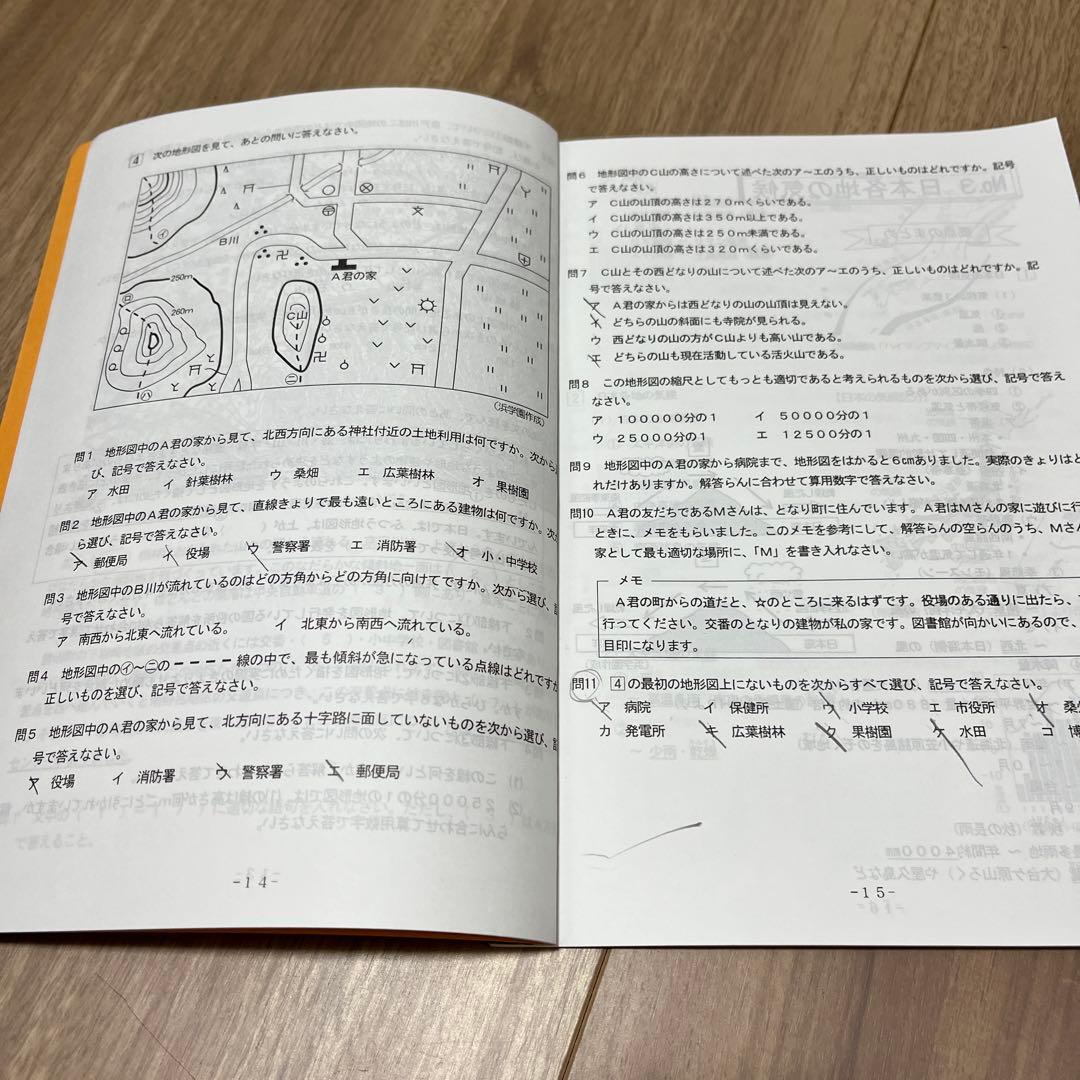 4 次の地形図を見て、あとの問いに答えなさい。
B川
A君の家
C山
250m
260m
イ
ロ
ハ
ニ
(浜学園作成)
問1 地形図中のA君の家から見て、北西方向にある神社付近の土地利用は何ですか。次から
び、記号で答えなさい。
ア 水田 イ 針葉樹林 ウ 桑畑 エ 広葉樹林 オ 果樹園
問2 地形図中のA君の家から見て、直線きょりで最も遠いところにある建物は何ですか。次
ら選び、記号で答えなさい。
ア 郵便局 イ 役場 ウ 警察署 エ 消防署 オ 小・中学校
問3 地形図中のB川が流れているのはどの方角からどの方角に向けてですか。次から選び、
号で答えなさい。
ア 南西から北東へ流れている。 イ 北東から南西へ流れている。
問4 地形図中の㋑~㋥の----線の中で、最も傾斜が急になっている点線はどれですか
正しいものを選び、記号で答えなさい。
問5 地形図中のA君の家から見て、北方向にある十字路に面していないものを次から選び、
号で答えなさい。
ア 役場 イ 消防署 ウ 警察署 エ 郵便局
-14-
問6 地形図中のC山の高さについて述べた次のア~エのうち、正しいものはどれですか。記号
で答えなさい。
ア C山の山頂の高さは270mくらいである。
イ C山の山頂の高さは350m以上である。
ウ C山の山頂の高さは250m未満である。
エ C山の山頂の高さは320mくらいである。
問7 C山とその西どなりの山について述べた次のア~エのうち、正しいものはどれですか。記
号で答えなさい。
ア A君の家からは西どなりの山の山頂は見えない。
イ どちらの山の斜面にも寺院が見られる。
ウ 西どなりの山の方がC山よりも高い山である。
エ どちらの山も現在活動している活火山である。
問8 この地形図の縮尺としてもっとも適切であると考えられるものを次から選び、記号で答え
なさい。
ア 100000分の1 イ 50000分の1
ウ 25000分の1 エ 12500分の1
問9 地形図中のA君の家から病院まで、地形図をはかると6cmありました。実際のきょりはど
れだけありますか。解答らんに合わせて算用数字で答えなさい。
問10 A君の友だちであるMさんは、となり町に住んでいます。A君はMさんの家に遊びに行
ときに、メモをもらいました。このメモを参考にして、解答らんの空らんのうち、Mさ
家として最も適切な場所に、「M」を書き入れなさい。
メモ
A君の町からの道だと、☆のところに来るはずです。役場のある通りに出たら、
行ってください。交番のとなりの建物が私の家です。図書館が向かいにあるので、
目印になります。
問11 4の最初の地形図上にないものを次からすべて選び、記号で答えなさい。
ア 病院 イ 保健所 ウ 小学校 エ 市役所 オ 桑
カ 発電所 キ 広葉樹林 ク 果樹園 ケ 水田 コ 博
-15-